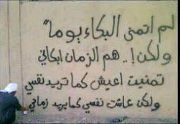 لم اتمنى البكاء يوما"
ولكن !.. هم الزمان ابكاني
تمنيت اعيش كما تريد نفسي
ولكن عاشت نفسي كما يريد زماني